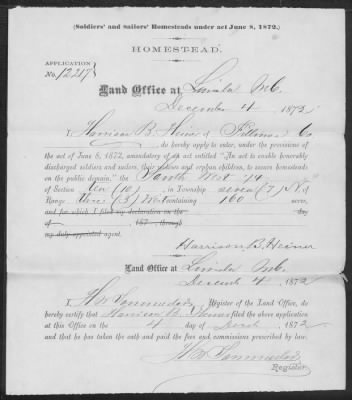 (Soldiers' and Sailors' Homesteads under act June 8, 1872.)
HOMESTEAD.
APPLICATION
No. 12217
Land Office at Lincoln Neb.
December 4 1872
I, Harrison B. Heiner of Fillmore Co
do hereby apply to enter, under the provisions of
the act of June 8, 1872, amendatory of an act entitled "An act to enable honorably
discharged soldiers and sailors, their widows and orphan children, to secure homesteads
on the public domain," the South West 1/4
of Section Ten (10) in Township seven (7) N of
Range three (3) West containing 160 acres,
and for which I filed my declaration on the day
of 187 , through
my duly appointed agent.
Harrison B. Heiner
Land Office at Lincoln Neb.
December 4 1872
I, Register of the Land Office, do
hereby certify that Harrison B. Heiner filed the above application
at this Office on the 4 day of 1872
and that he has taken the oath and paid the fees and commissions prescribed by law.
Register.